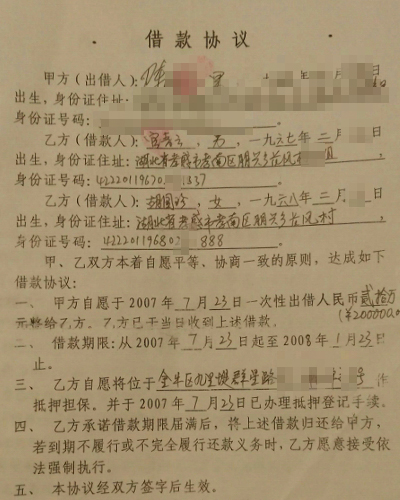 借款协议
甲方（出借人）：
出生，身份证住址：
身份证号码：
乙方（借款人）： 男，一九六七年二月
出生，身份证住址：湖北省孝感市孝南区朋兴乡 风
身份证号码：42220119670 337
乙方（借款人）：胡国珍，女，一九六八年三月
出生，身份证住址：湖北省孝感市孝南区朋兴乡 风 村，
身份证号码：42220119680 888
甲、乙双方本着自愿平等、协商一致的原则，达成如下
借款协议：
一、甲方自愿于2007年7月23日一次性出借人民币贰拾万
元整给乙方。乙方已于当日收到上述借款。（¥200000.0
二、借款期限：从2007年7月23日起至2008年1月23日
止。
三、乙方自愿将位于 群星路 号作
抵押担保。并于2007年7月23日已办理抵押登记手续。
四、乙方承诺借款期限届满后，将上述借款归还给甲方，
若到期不履行或不完全履行还款义务时，乙方愿意接受依
法强制执行。
五、本协议经双方签字后生效。